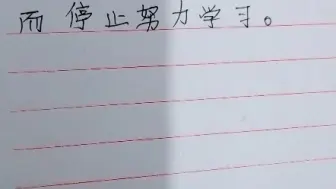 而停止努力学习。